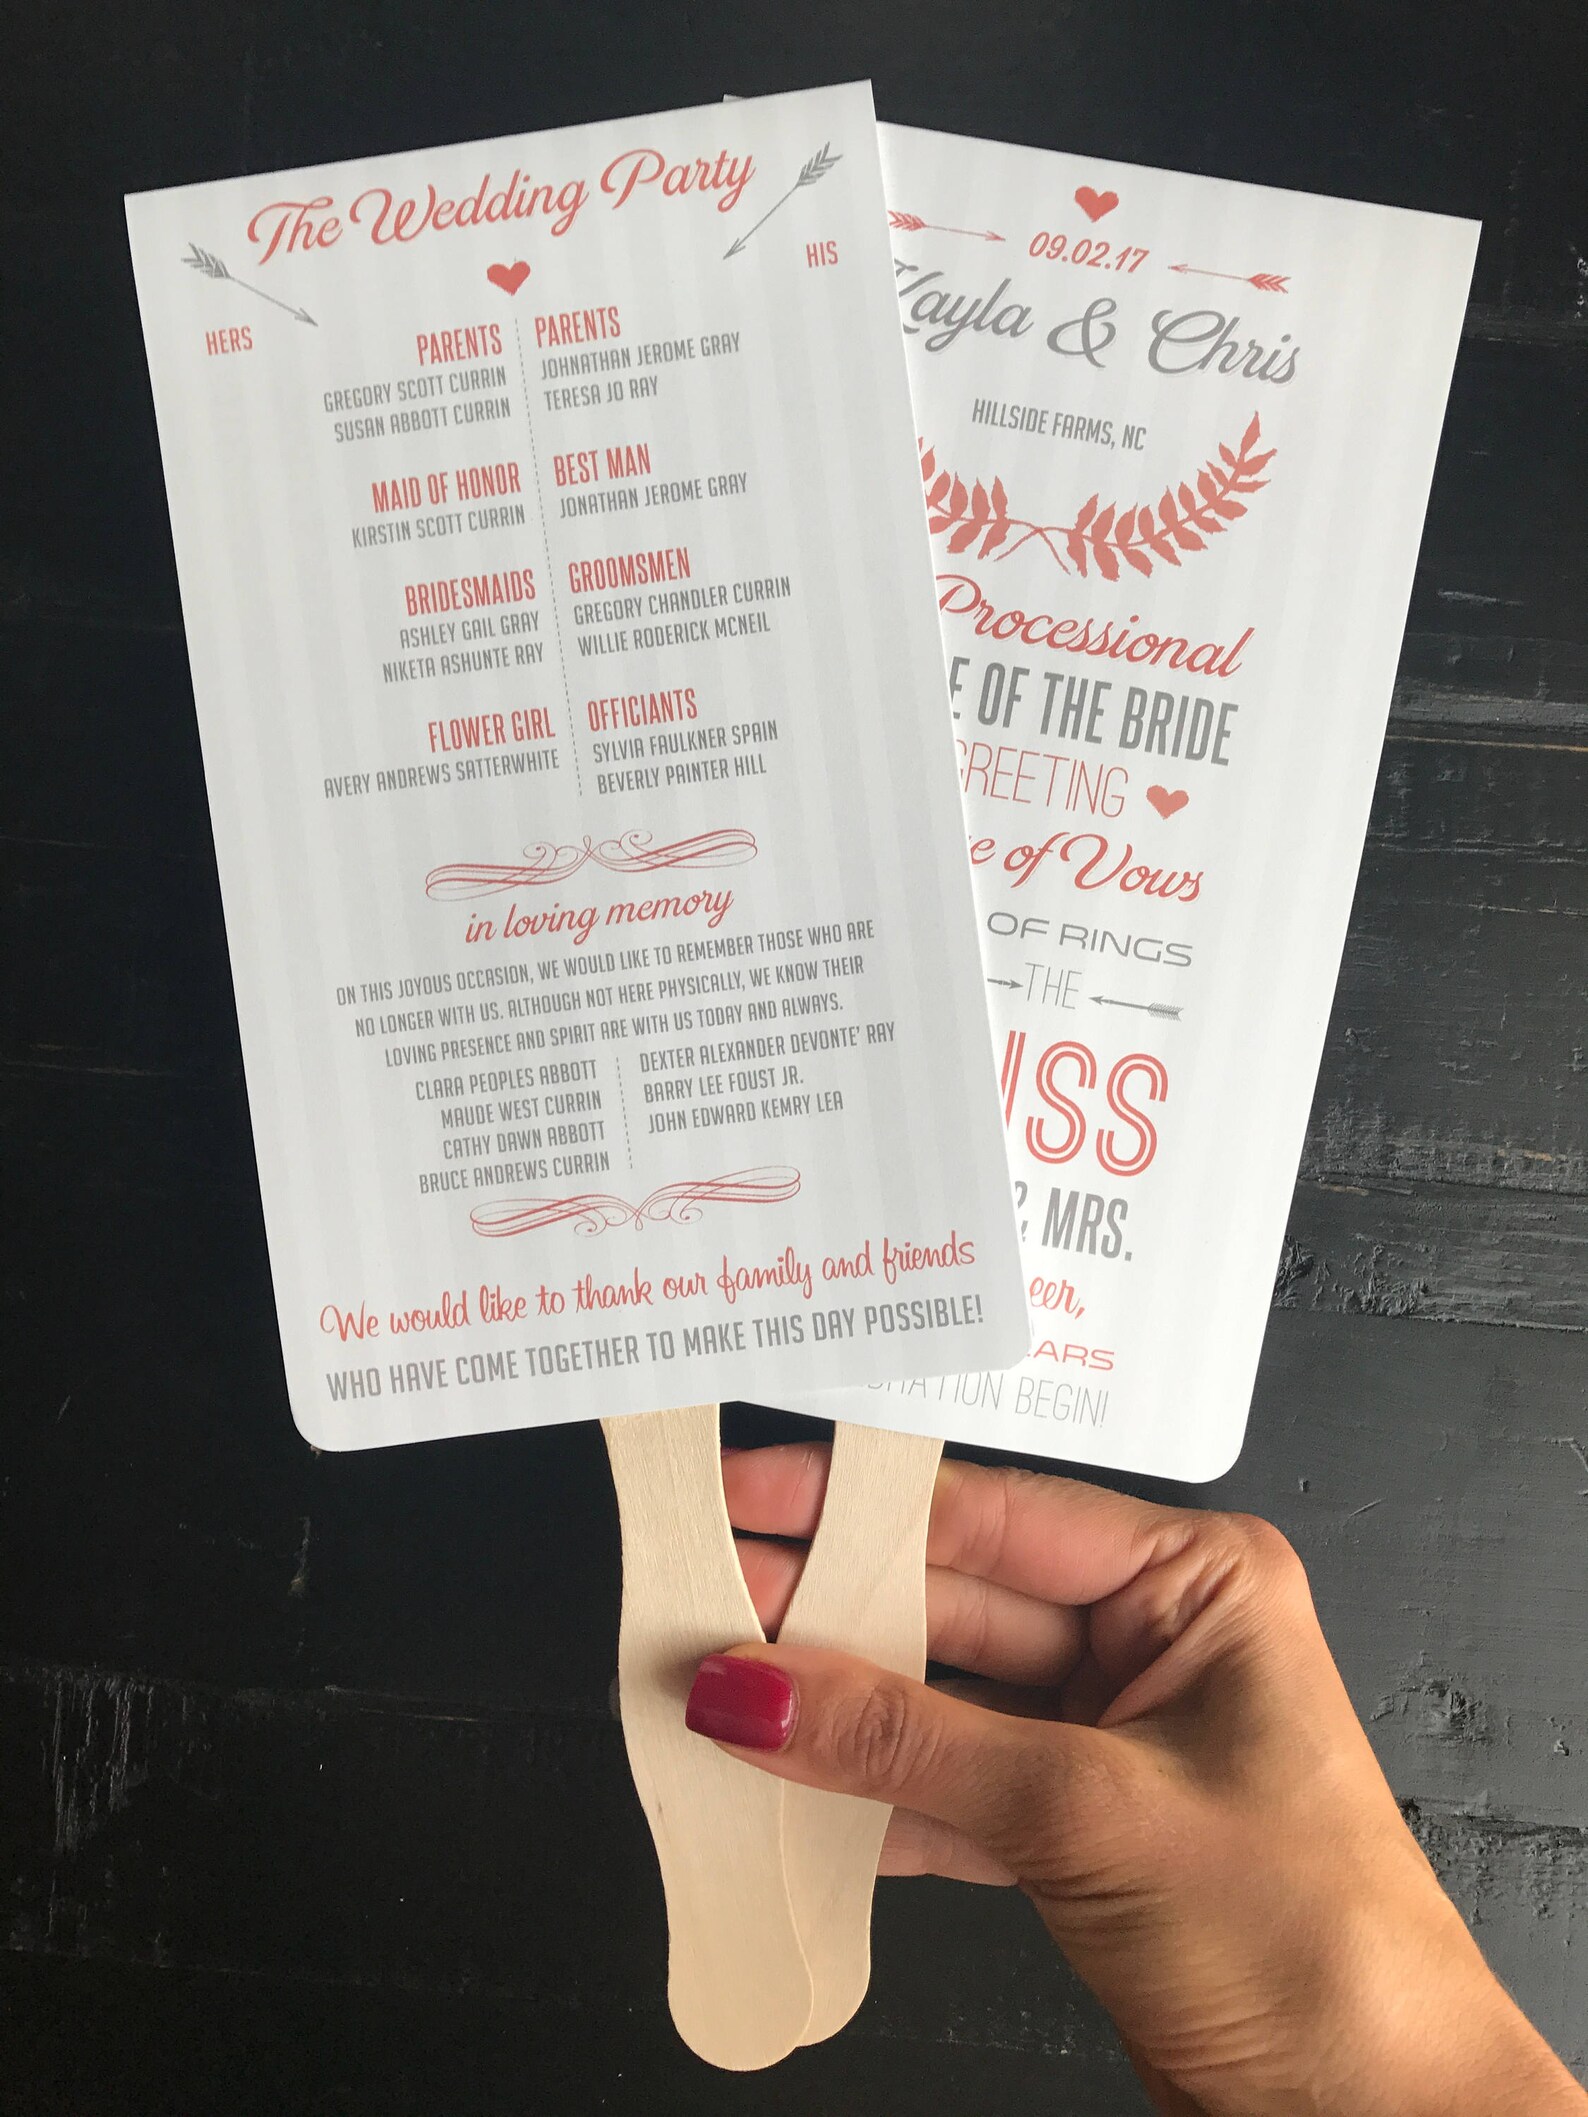 The Wedding Party
HERS
HIS
PARENTS
GREGORY SCOTT CURRIN
SUSAN ABBOTT CURRIN
MAID OF HONOR
KIRSTIN SCOTT CURRIN
BRIDESMAIDS
ASHLEY GAIL GRAY
NIKETA ASHUNTE RAY
FLOWER GIRL
AVERY ANDREWS SATTERWHITE
PARENTS
JOHNATHAN JEROME GRAY
TERESA JO RAY
BEST MAN
JONATHAN JEROME GRAY
GROOMSMEN
GREGORY CHANDLER CURRIN
WILLIE RODERICK MCNEIL
OFFICIANTS
SYLVIA FAULKNER SPAIN
BEVERLY PAINTER HILL
in loving memory
ON THIS JOYOUS OCCASION, WE WOULD LIKE TO REMEMBER THOSE WHO ARE
NO LONGER WITH US. ALTHOUGH NOT HERE PHYSICALLY, WE KNOW THEIR
LOVING PRESENCE AND SPIRIT ARE WITH US TODAY AND ALWAYS.
CLARA PEOPLES ABBOTT
MAUDE WEST CURRIN
CATHY DAWN ABBOTT
BRUCE ANDREWS CURRIN
DEXTER ALEXANDER DEVONTE' RAY
BARRY LEE FOUST JR.
JOHN EDWARD KEMRY LEA
We would like to thank our family and friends
WHO HAVE COME TOGETHER TO MAKE THIS DAY POSSIBLE!
09.02.17
Kayla & Chris
HILLSIDE FARMS, NC
Processional
OF THE BRIDE
GREETING
of Vows
OF RINGS
THE
& MRS.
BEGIN!